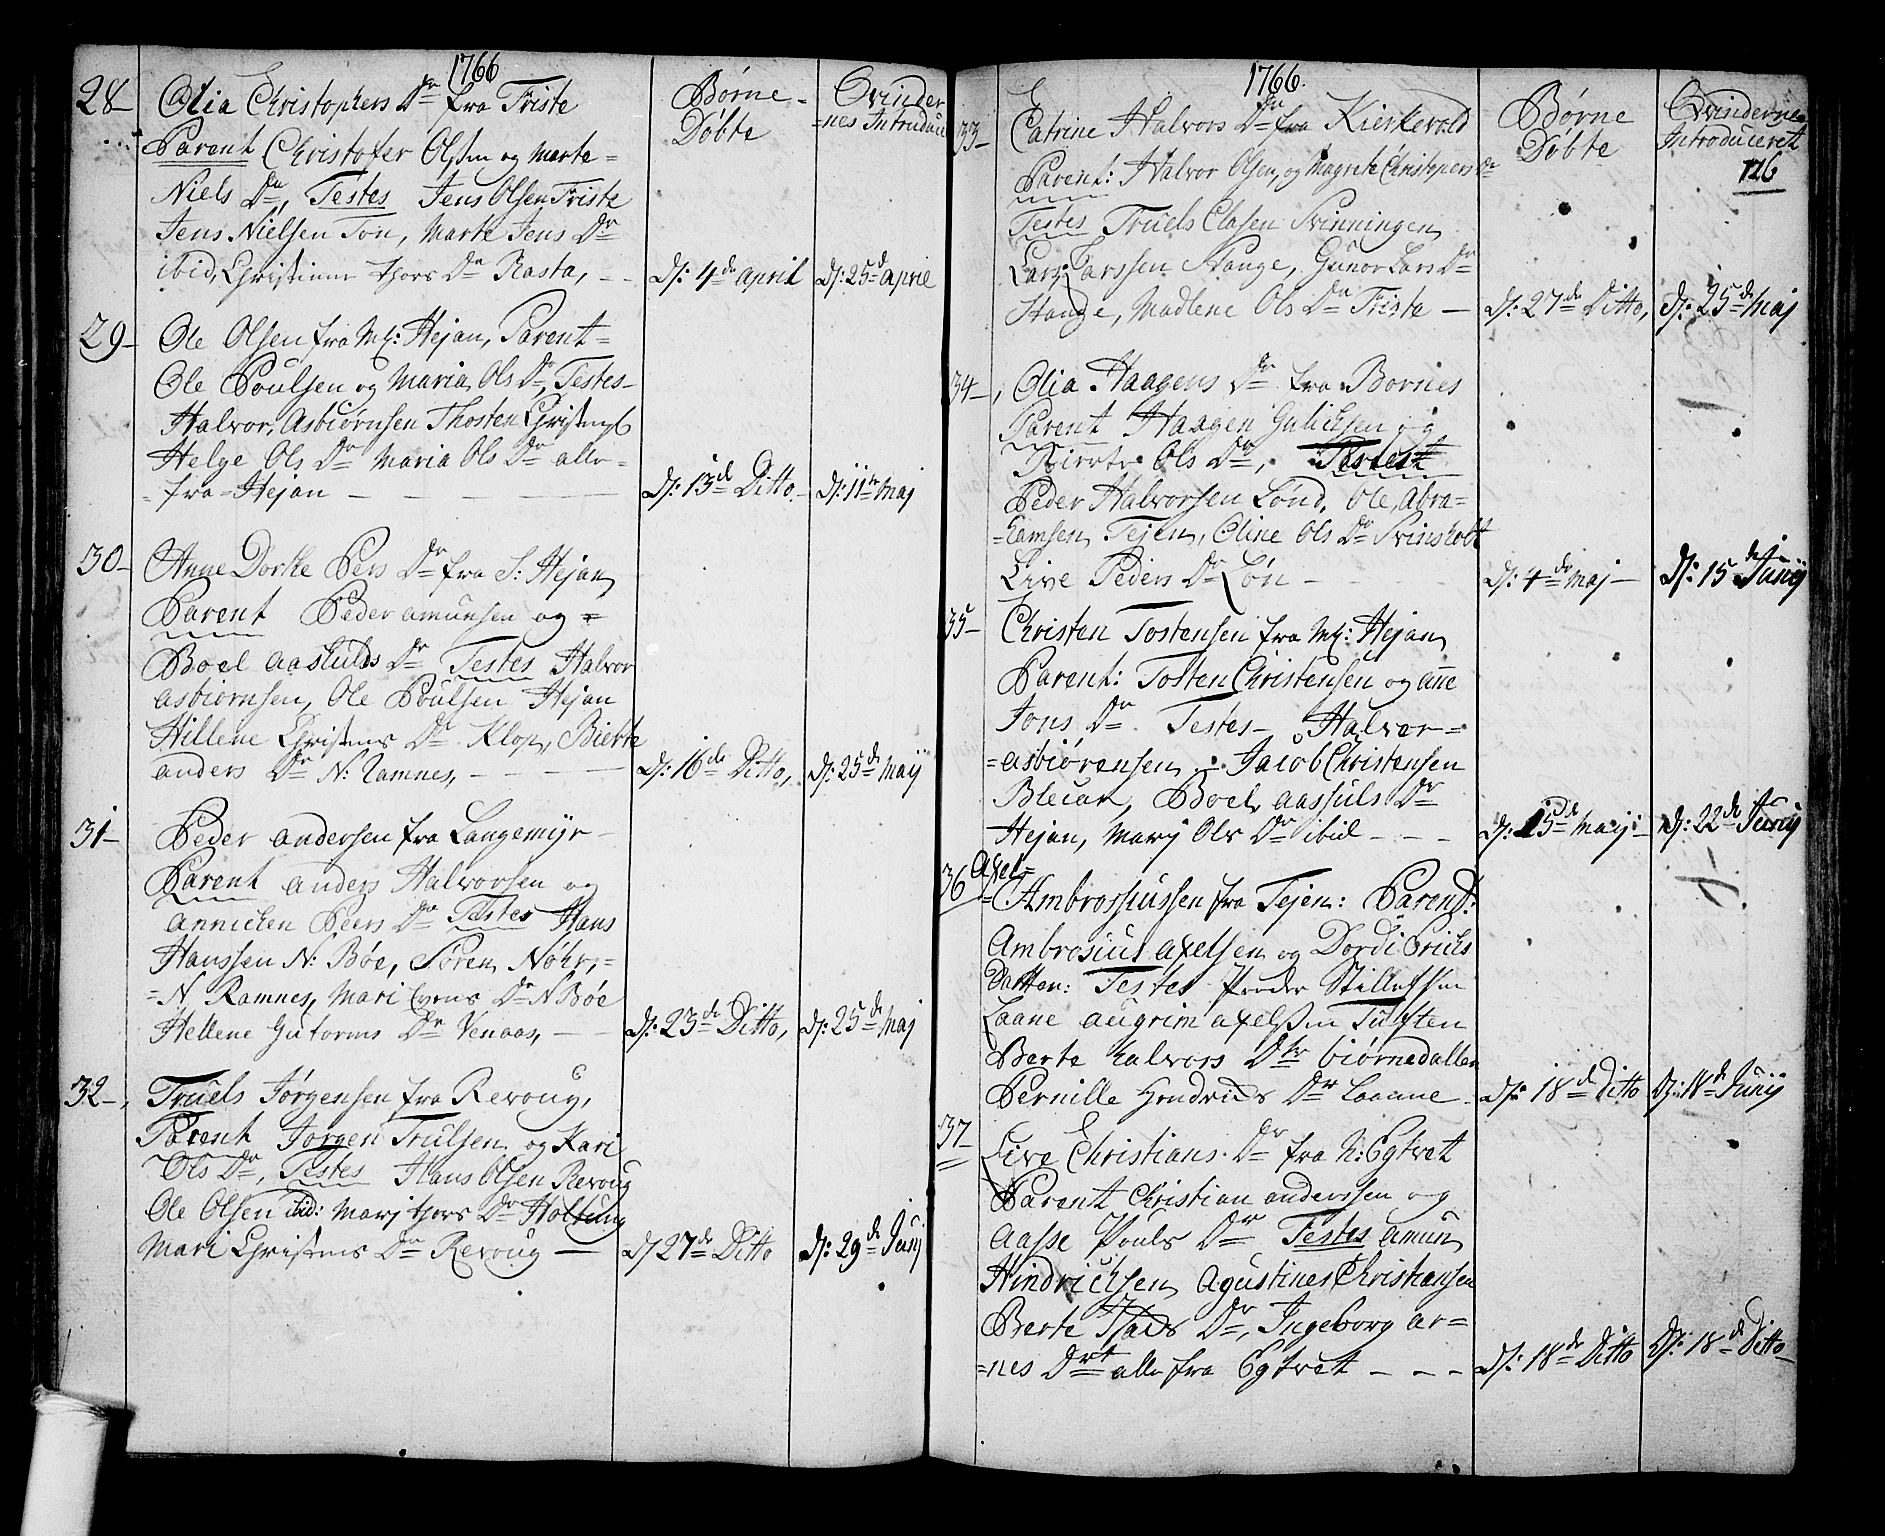 1766
Børne-
Døbte
Qvinder
=nes Introduc
28- Olia Christophers Dr fra Triste
Parent Christofer Olsen og Marte=
Niels Dr, Testes Jens Olsen Triste
Jens Nielsen Ton, Marte Jens Dr
ibid, Christine Thors Dr Rasta, - - d: 4de April d: 25d Aprie
29- Ole Olsen fra Mx: Hejan, Parent=
Ole Poulsen og Maria Ols Dr, Testes-
Halvor Asbiørnsen Thosten Christens
Helge Ols Dr Maria Ols Dr alle-
=fra Hejan - - - - d: 13d Ditto d: 11te Maj
30- Anne Dorthe Pers Dr fra S: Hejan
Parent Peder Amunsen og =
Boel Aasulds Dr Testes Halvor
Asbiørnsen, Ole Poulsen Hejan
Hillene Christens Dr Klop, Bierte
Anders Dr N: Ramnes, - - - d: 16de Ditto, d: 25de Maij
31- Peder Andersen fra Langemÿr -
Parent Anders Halvorsen og
Annichen Peers Dr Testes Hans
Hanssen N: Bøe, Søren Nøhr,=
=N Ramnes, Mari Evens Dr N Bøe
Hellene Gutorms Dr Venaas, - d: 23de Ditto, d: 25de Maj
32-, Truels Jørgensen fra Revoug,
Parent Jørgen Trulsen og Kari
Ols Dr, Testes Hans Olsen Revoug
Ole Olsen ibid: Marj Thors Dr Holtung
Mari Christens Dr Revoug - d 27de Ditto d: 29de Junj
1766.
Børne
Døbte
Qvinderne
Introduceret
126
33- Catrine Halvors Dr fra Kierkevold
Parent: Halvor Olsen, og Magrete Christopers Dr
Testes Truels Clasen Svinningen
Lars Larssen Stange, Gunor Lars Dr
Stange, Madlene Ols Dr Triste - d: 27de Ditto, d: 25de Maj
34-, Olia Haagens Dr fra Bornes
Parent Haagen Gulichsen og
Ols Dr, Testes
Peder Halvorsen Lønd, Ole, Abra=
=hamsen Tejen, Oline Ols Dr Svinsholt
Live Peders Dr Løn - d: 4de Maj - d: 15de Junij
35- Christen Tostensen fra Mx: Hejan
Parent: Tosten Christensen og Añe
Jons Dr Testes- Halvor-
=Asbiørensen, Jacob Christensen
Boel Aassuls Dr
Hejan, Marj Ols Dr ibid - - - d: 15de Maij- d: 22de Junij
36 Axel
=Ambrosiussen fra Tejen: Parent:
Ambrosius Axelsen og Dordi Erichs
Datter: Testes Peder Stillefsen
Laane Augrim Axelsen Tulften
Berte Halvors Dtr biørnedallen
Pernille Hendrichs Dr Laane. d: 18de Ditto d: 18de Junij
37 Live Christians Dr fra N: Egtvet
Parent Christian Anderssen og
Aasse Pouls Dr Testes Amun
Hindrichsen Agustines Christiansen
Berte Dr, Ingeborg Ar=
=nes Drt alle fra Egtvet - - - d: 18de Ditto d: 18de Ditto